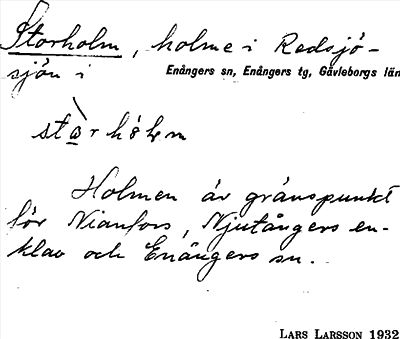 Storholm, holme i Redsjö-
sjön i Enångers sn, Enångers tg, Gävleborgs län
Holmen är gränspunkt
för Nianfors, Njutångers en-
klav och Enångers sn.
LARS LARSSON 1932